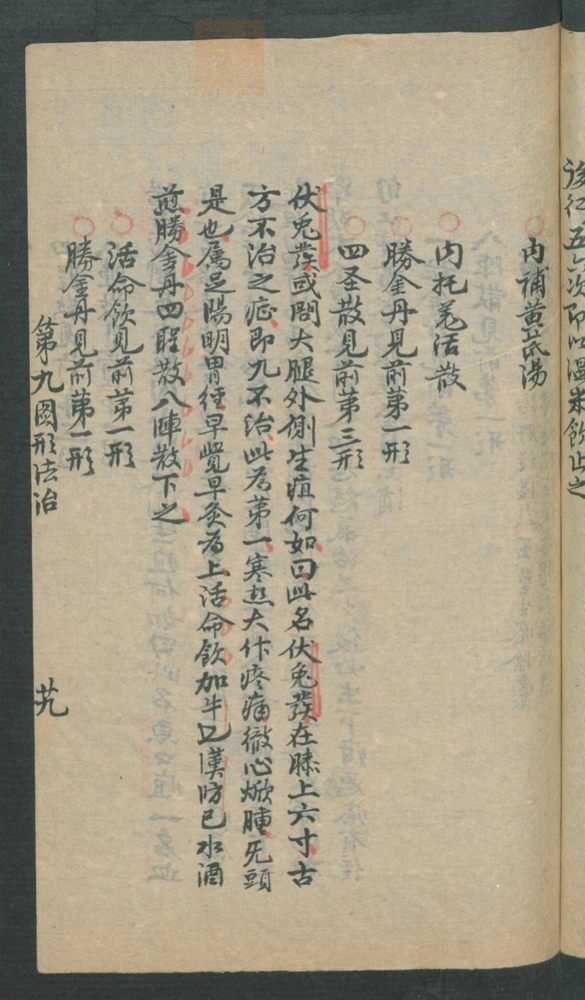 後仁五六次即以温米飲止之
內補黃芪湯
內托羌活散
勝金丹見前苐一形
四圣散見前苐三形
伏兔發或問大腿外側生疽何如曰此名伏兔發在膝上六寸古
方不治之症即九不治此為苐一寒热大作疼痛徹心焮腫旡頭
是也属足陽明胃徑早覺早灸為上活命飲加牛夕漢防已水酒
煎勝金丹四聖散八陣散下之
活命飲見前苐一形
勝金丹見前苐一形
苐九圖形法治
卄九